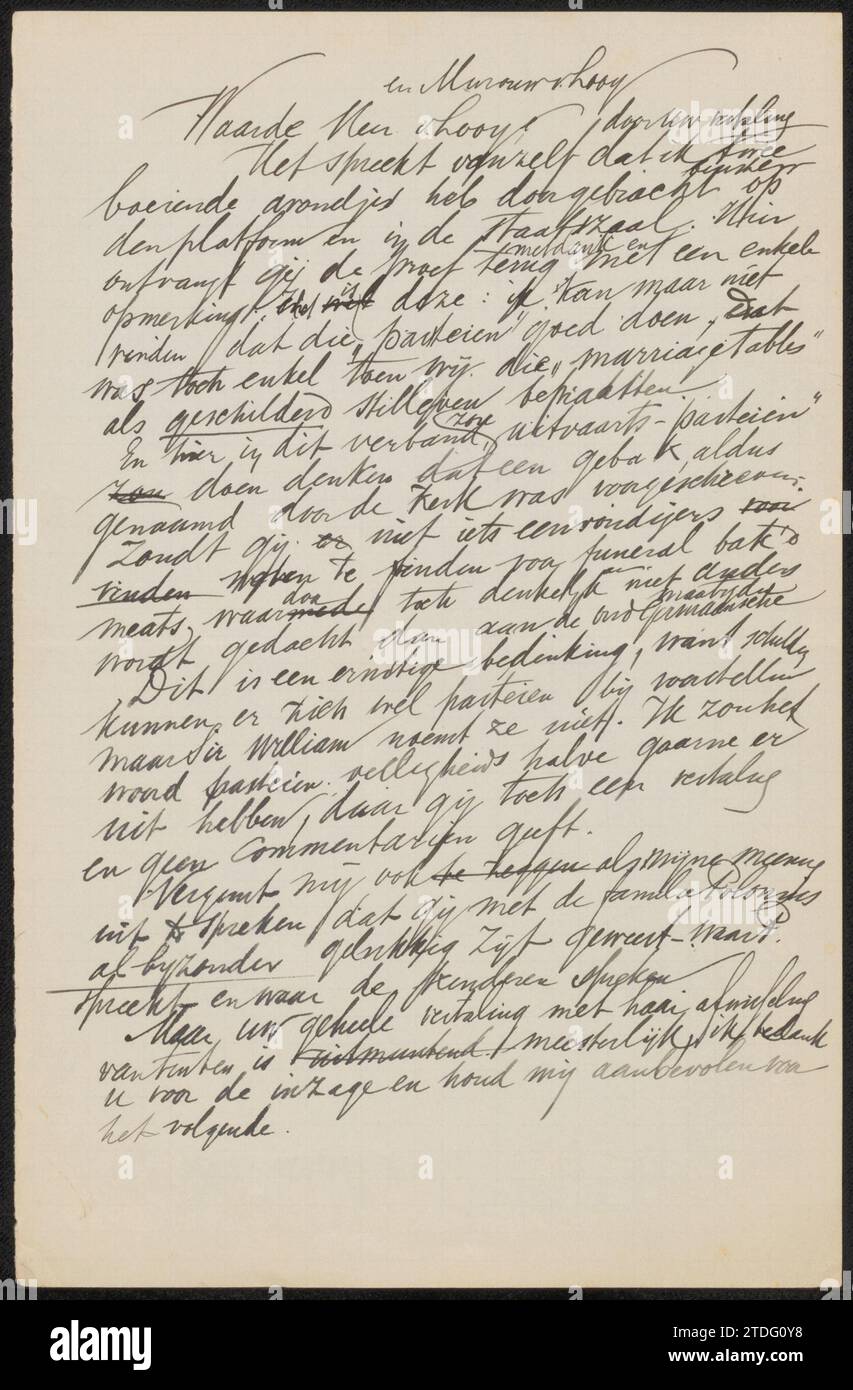 en Mevrouw v Looy
Waarde Heer v Looy!
door uw
Het spreekt vanzelf dat ik twee
boeiende avondjes heb doorgebracht op
den platform en in de staatszaal. Hier
met dank en
ontvangt gij de proef terug met een enkele
opmerking. is deze: ik kan maar niet
vinden dat die „parteien" goed doen, Dat
was toch enkel toen wij die „marriage tables"
als geschilderd stilleven bepraatten
En hier in dit verband, zou „uitvaarts-parteien"
zou doen denken dat een gebak aldus
genaamd door de Kerk was voorgeschreven.
Zoudt gij er niet iets eenvoudigers voor
vinden te vinden voor funeral bak'd
meats, waar mede toch denkelijk niet anders
wordt gedacht dan aan de oud Germaansche maaltijden
Dit is een ernstige bedenking, want schilders
kunnen er zich wel parteien bij voorstellen
maar Sir William noemt ze niet. Ik zou het
woord parteien veiligheids halve gaarne er
uit hebben, daar gij toch een vertaling
en geen Commentarien geeft.
Vergunt mij ook te zeggen als mijne meening
uit te spreken dat gij met de familie Polonius
al byzonder gelukkig zijt geweest - waar P.
spreekt en waar de kinderen spreken
Maar uw geheele vertaling met haar afwisseling
van tinten is uitmuntend meesterlijk, ik bedank
u voor de inzage en houd mij aanbevolen voor
het volgende.
alamy
Image ID: 2TDG0Y8
www.alamy.com